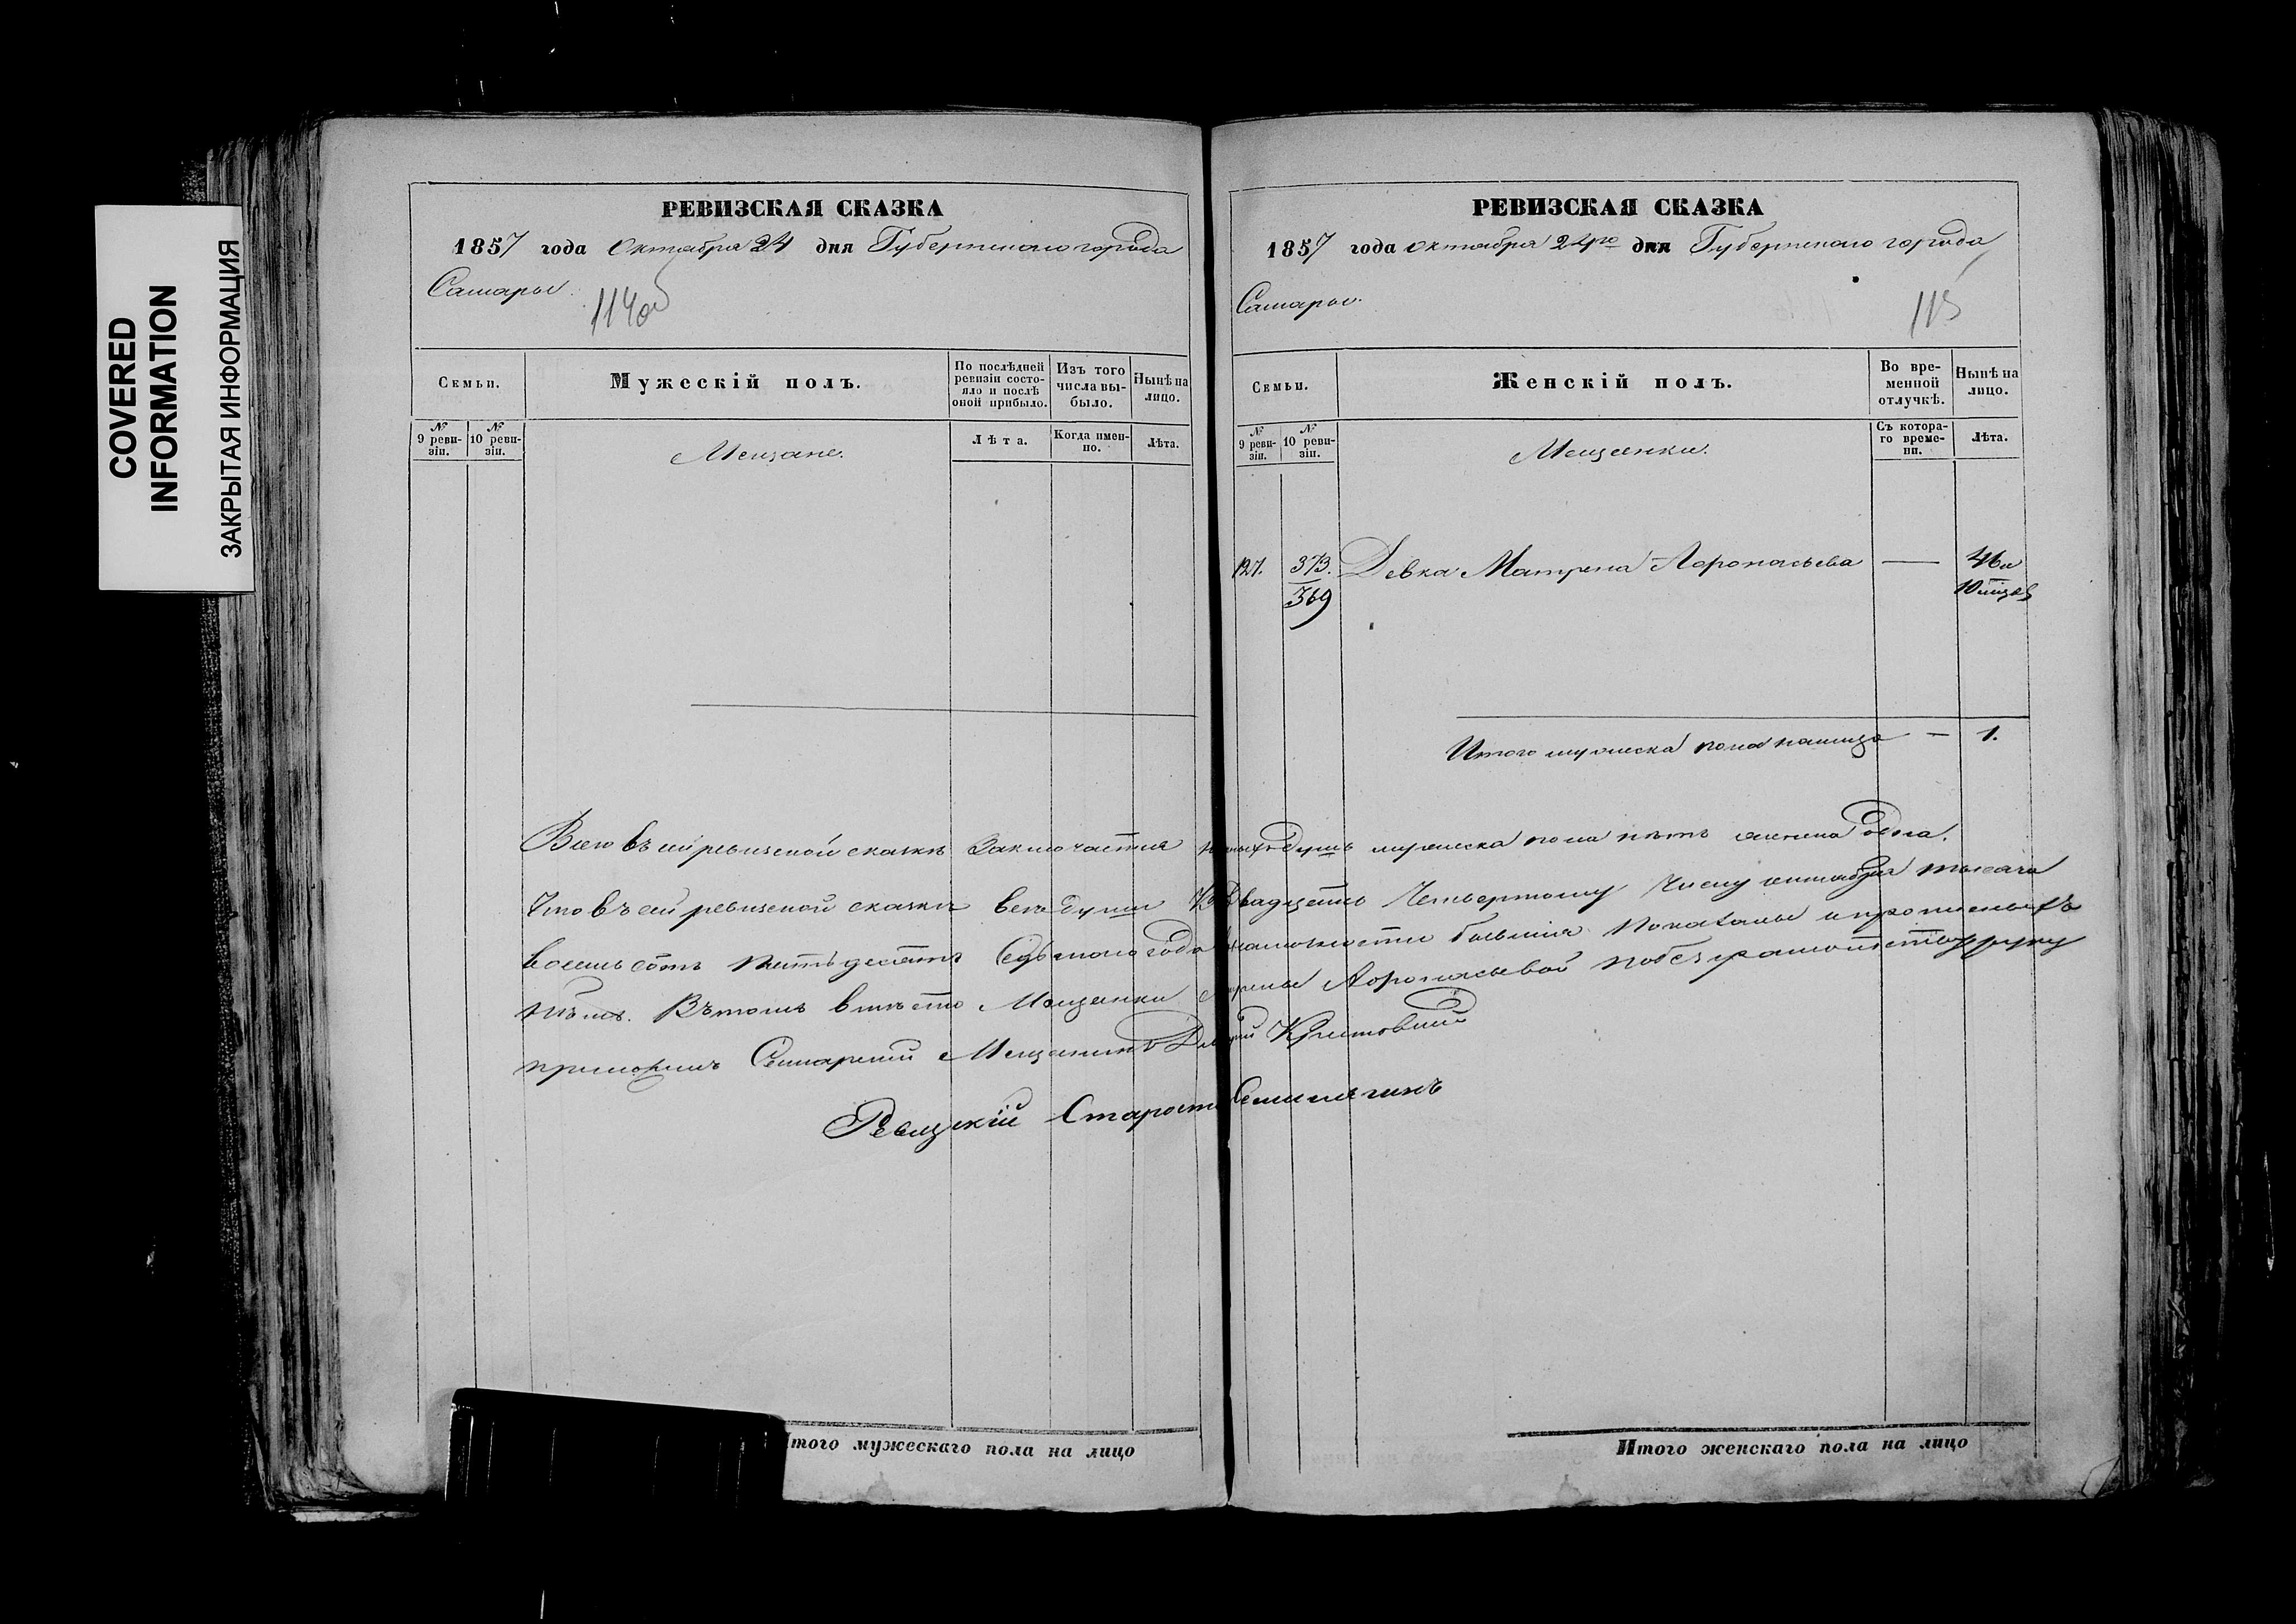 COVERED
INFORMATION
ЗАКРЫТАЯ ИНФОРМАЦИЯ
РЕВИЗСКАЯ СКАЗКА
1857 года Октября 24 дня Губернскаго города
Самары.
114об
Семьи.
Мужескій полъ.
По послѣдней
ревизіи состо-
яло и послѣ
оной прибыло.
Изъ того
числа вы-
было.
Нынѣ на
лицо.
№
9 реви-
зіи.
№
10 реви-
зіи.
Мещане.
Лѣта.
Когда имен-
но.
Лѣта.
РЕВИЗСКАЯ СКАЗКА
1857 года октября 24го дня Губернскаго города
Самары.
115
Семьи.
Женскій полъ.
Во вре-
менной
отлучкѣ.
Нынѣ на
лицо.
№
9 реви-
зіи.
№
10 реви-
зіи.
Мещанки.
Съ котора-
го време-
ни.
Лѣта.
127. 373. Девка Матрена Афонасьева — 46 и
369 10 мцов
Итого мужеска пола налицо — 1.
Всего въ сей ревизской сказкѣ заключается душъ мужеска пола нѣтъ женска одна.
Что въ сей ревизской сказкѣ все души Двадцать Четвертому Числу октября тысяча
восемьсотъ пятьдесятъ Седьмого года наличности бывшия показаны и прописныхъ
нѣтъ. Въ томъ вместо Мещанки Афонасьевой по безграмотству руку
приложилъ Самарский Мещанинъ
Ревизкій Староста
Итого мужескаго пола на лицо
Итого женскаго пола на лицо